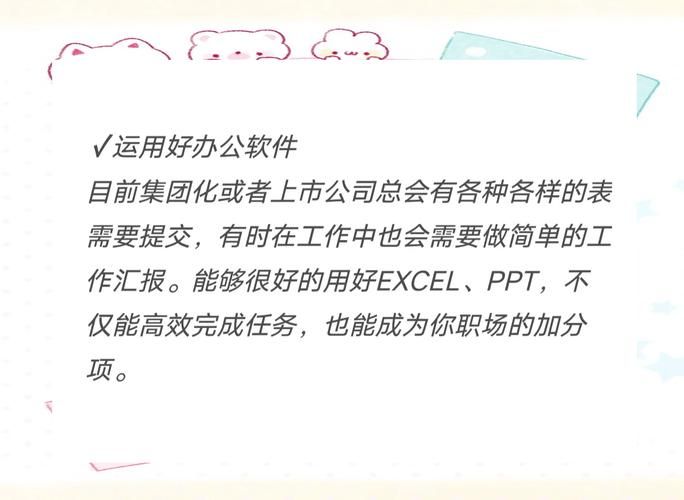 ✓运用好办公软件
目前集团化或者上市公司总会有各种各样的表
需要提交，有时在工作中也会需要做简单的工
作汇报。能够很好的用好EXCEL、PPT，不
仅能高效完成任务，也能成为你职场的加分
项。